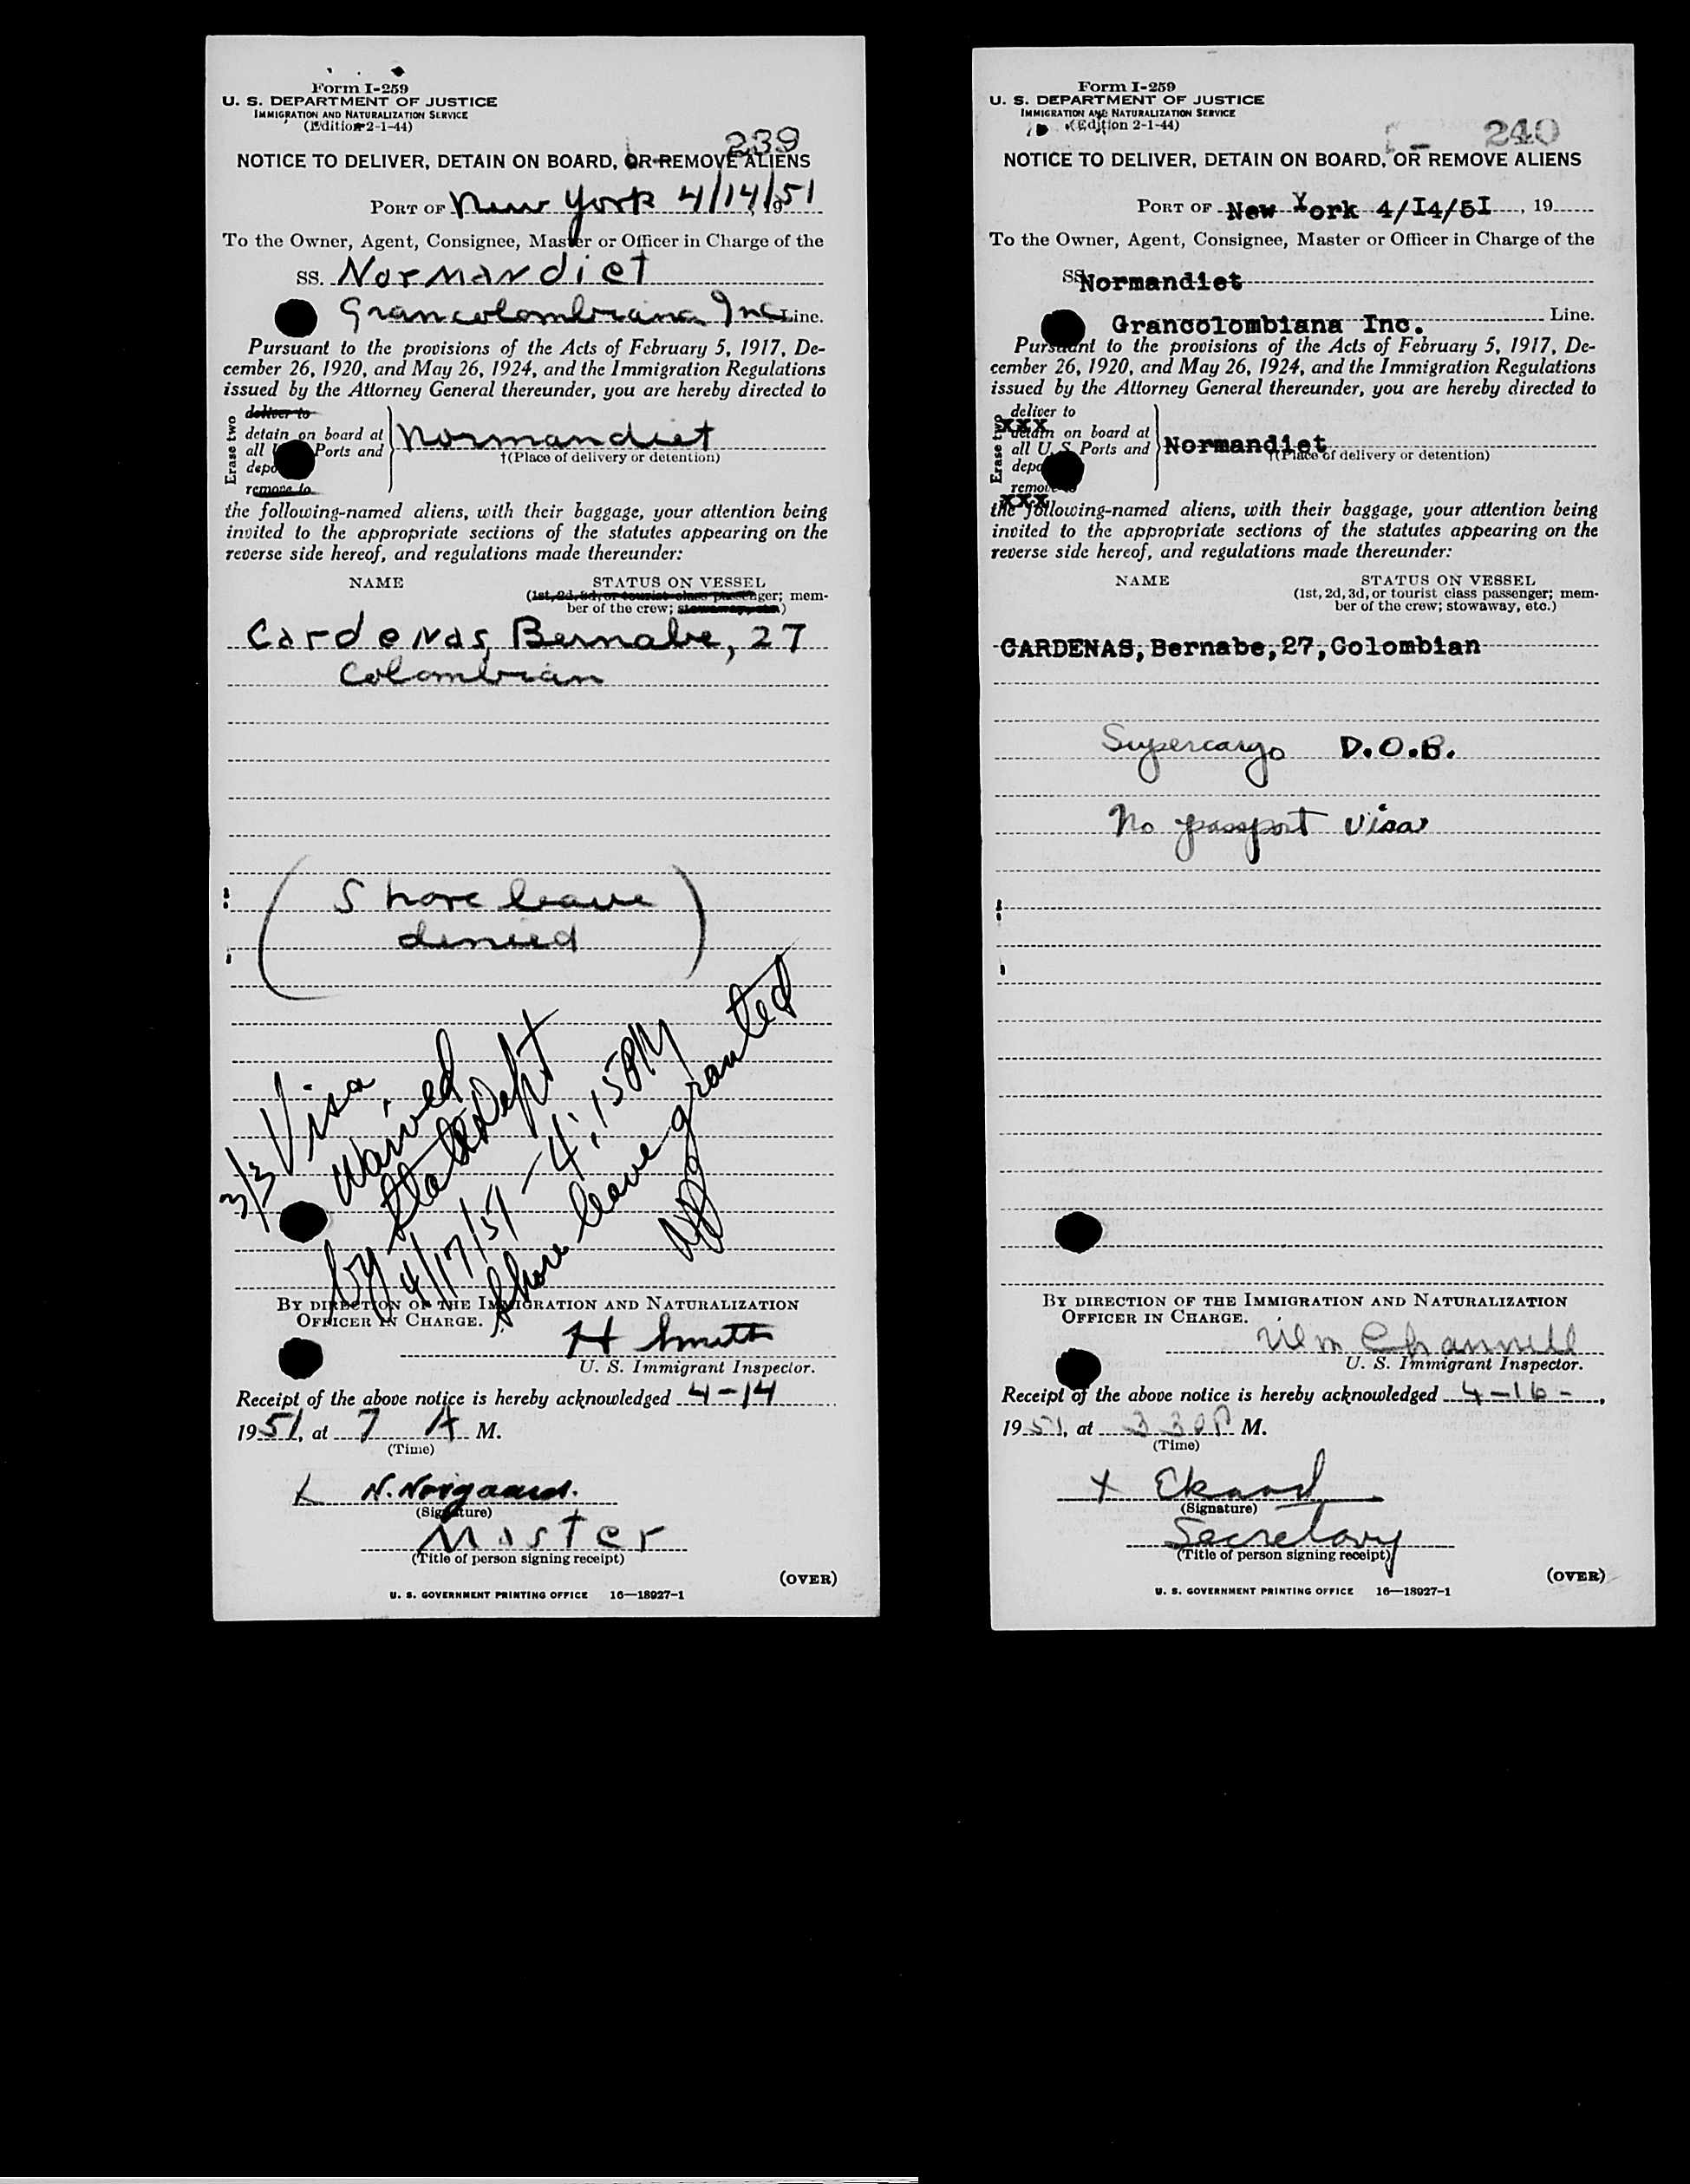 Form I-259
U. S. DEPARTMENT OF JUSTICE
IMMIGRATION AND NATURALIZATION SERVICE
(Edition 2-1-44)
239
NOTICE TO DELIVER, DETAIN ON BOARD, OR REMOVE ALIENS
PORT OF New York 4/14/51, 19
To the Owner, Agent, Consignee, Master or Officer in Charge of the
SS. Normandiet
Grancolombiana Inc Line.
Pursuant to the provisions of the Acts of February 5, 1917, De-
cember 26, 1920, and May 26, 1924, and the Immigration Regulations
issued by the Attorney General thereunder, you are hereby directed to
Erase two
deliver to
detain on board at
all Ports and
depo
remove to
Normandiet
†(Place of delivery or detention)
the following-named aliens, with their baggage, your attention being
invited to the appropriate sections of the statutes appearing on the
reverse side hereof, and regulations made thereunder:
NAME STATUS ON VESSEL
(1st, 2d, 3d, or tourist class passenger; mem-
ber of the crew; stowaway, etc.)
Cardenas, Bernabe, 27
Colombian
(Shore leave
denied)
3/3 Visa
Waived
by State Dept
4/17/51 - 4:15 PM
Shore leave granted
BY DIRECTION OF THE IMMIGRATION AND NATURALIZATION
OFFICER IN CHARGE.
H Smith
U. S. Immigrant Inspector.
Receipt of the above notice is hereby acknowledged 4-14
1951, at 7 A M.
(Time)
N. Norgaard.
(Signature)
Master
(Title of person signing receipt)
(OVER)
U. S. GOVERNMENT PRINTING OFFICE 16—18927-1
Form I-259
U. S. DEPARTMENT OF JUSTICE
IMMIGRATION AND NATURALIZATION SERVICE
(Edition 2-1-44)
240
NOTICE TO DELIVER, DETAIN ON BOARD, OR REMOVE ALIENS
PORT OF New York 4/I4/5I, 19
To the Owner, Agent, Consignee, Master or Officer in Charge of the
SS Normandiet
Grancolombiana Inc. Line.
Pursuant to the provisions of the Acts of February 5, 1917, De-
cember 26, 1920, and May 26, 1924, and the Immigration Regulations
issued by the Attorney General thereunder, you are hereby directed to
Erase two
deliver to
xxx
detain on board at
all U. S. Ports and
depo
remove to
xxx
Normandiet
†(Place of delivery or detention)
the following-named aliens, with their baggage, your attention being
invited to the appropriate sections of the statutes appearing on the
reverse side hereof, and regulations made thereunder:
NAME STATUS ON VESSEL
(1st, 2d, 3d, or tourist class passenger; mem-
ber of the crew; stowaway, etc.)
CARDENAS, Bernabe, 27, Colombian
Supercargo D.O.B.
No passport visa
BY DIRECTION OF THE IMMIGRATION AND NATURALIZATION
OFFICER IN CHARGE.
Wm Channell
U. S. Immigrant Inspector.
Receipt of the above notice is hereby acknowledged 4-16-,
1951, at 3 30 P M.
(Time)
X
(Signature)
Secretary
(Title of person signing receipt)
(OVER)
U. S. GOVERNMENT PRINTING OFFICE 16—18927-1